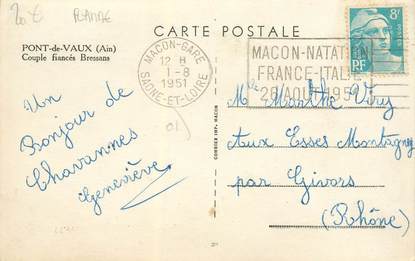 20 €
CARTE POSTALE
PONT-de-VAUX (Ain)
Couple fiancés Bressans
MACON-GARE
12 H
1-8
1951
SAONE-ET-LOIRE
MACON-NATATION
FRANCE-ITALIE
26 AOUT 1951
8F
RF
Un
Bonjour de
Chavannes
Geneviève
01
COMBIER IMP. MACON
Mlle Marthe Viry
Aux Esses Montagny
par Givors
(Rhône)